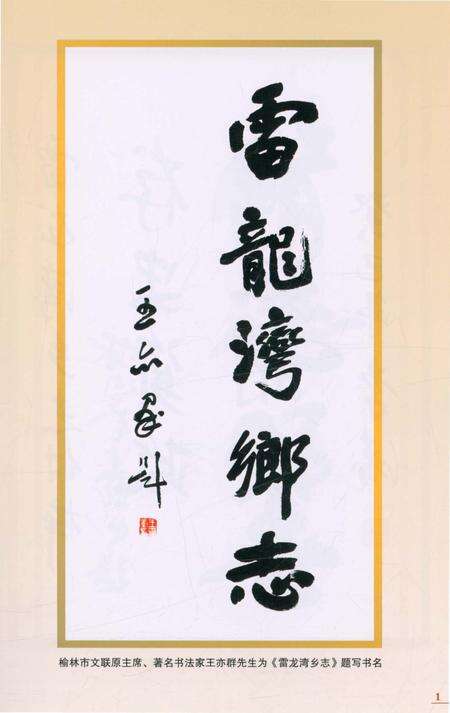 雷龍灣鄉志
王亦群题
榆林市文联原主席、著名书法家王亦群先生为《雷龙湾乡志》题写书名
1